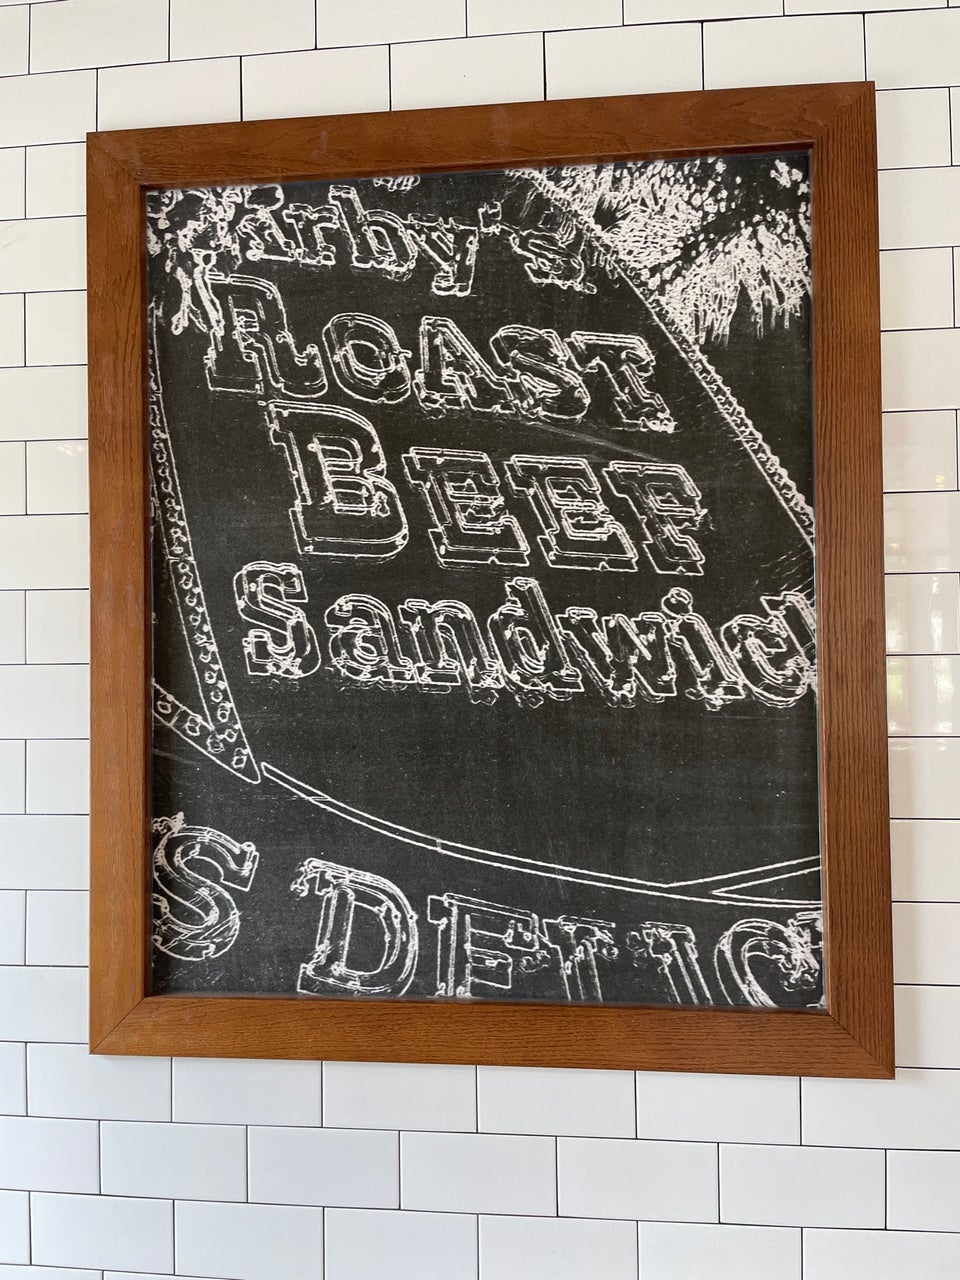 Arby's
ROAST
BEEF
Sandwich
S DELIC